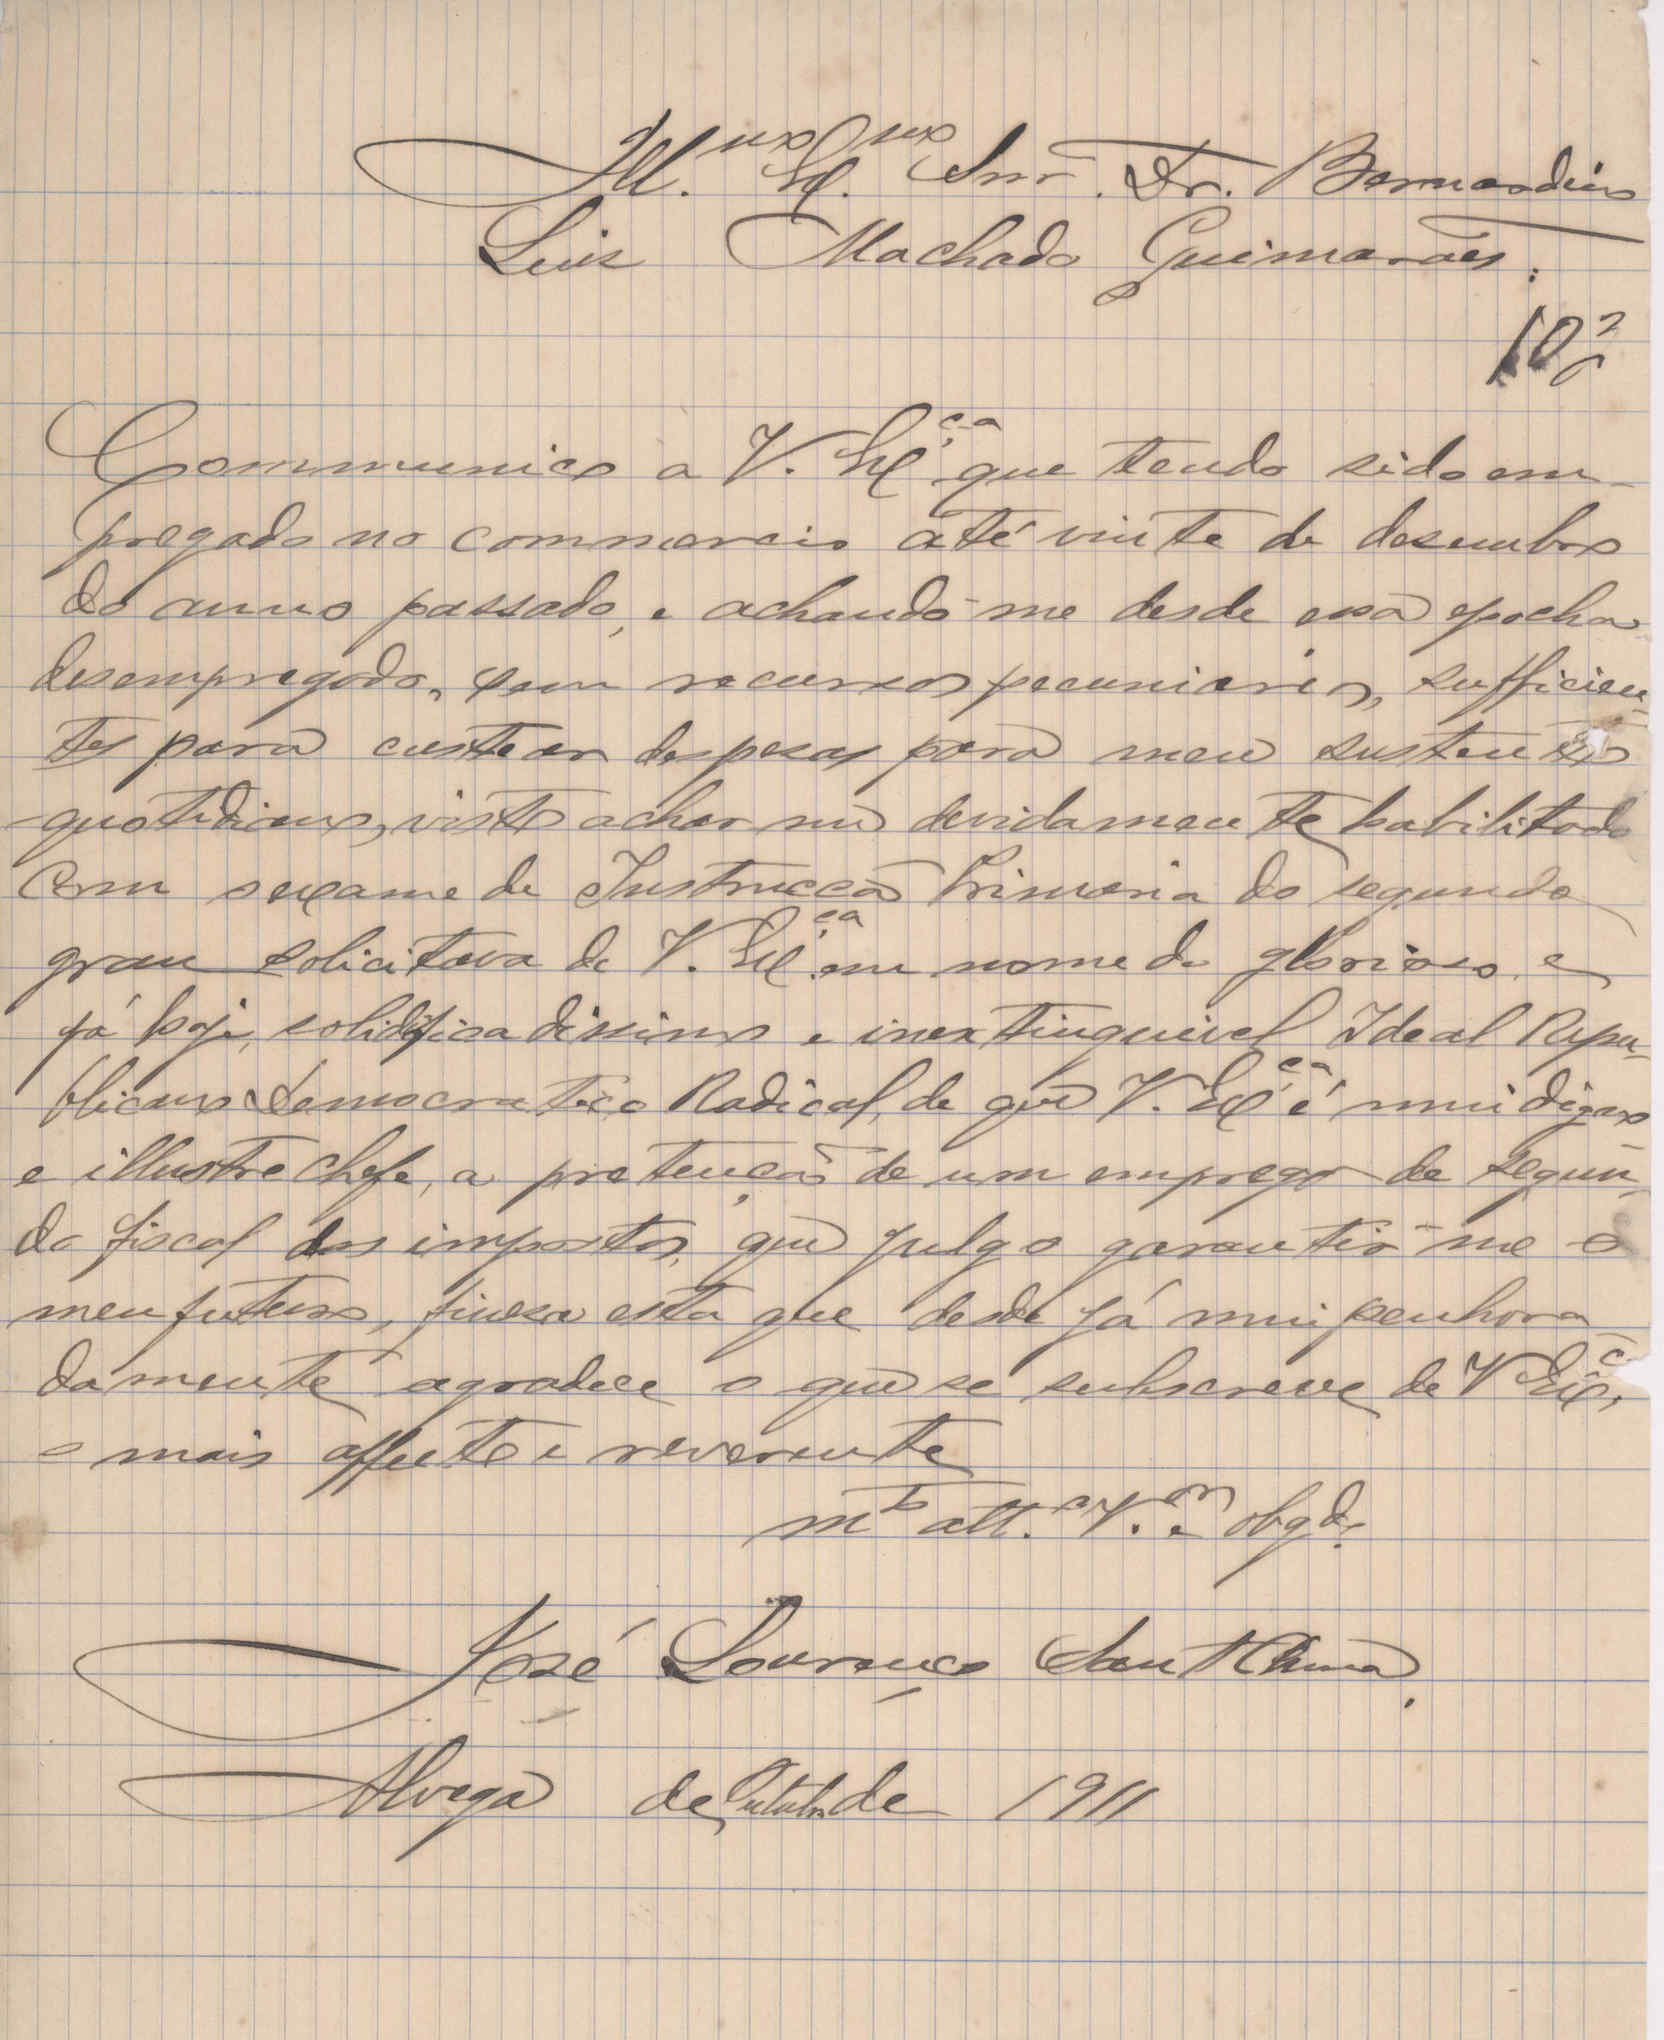 Ill.mo Ex.mo Snr. Dr. Bernardino
Luis Machado Guimarães:
Communico a V. Ex.ça que tendo sido em-
pregado no commercio até vinte de desembro
do anno passado, e achando-me desde essa epocha
desempregado, sem recursos pecuniarios, sufficien-
tes para custear despesas para meu sustento
quotidiano, visto achar me devidamente habilitado
com o exame de Instrucção Primaria do segundo
grau solicitava de V. Ex.ça em nome do glorioso e
já hoje, solidificadissimo e inextinguivel Ideal Repu-
blicano Democratico Radical, de que V. Ex.ça é mui digno
e illustre chefe, a pretenção de um emprego de segun-
do fiscal dos impostos, que julgo garantir-me o
meu futuro, finesa esta que desde já mui penhora-
damente agradece o que se subscreve de V. Ex.ç
o mais affecto e reverente
m.to att.o V.or e obgdo.
José Lourenço Sant'Anna.
Alvega de Outubro de 1911